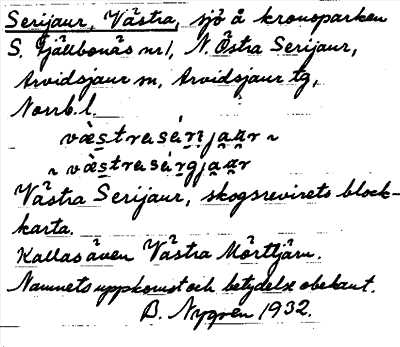 Serijaur, Västra, sjö å kronoparken
S. Fjällbonäs nr 1, N. Östra Serijaur,
Arvidsjaur sn, Arvidsjaur tg,
Norrb. l.
væstrasérijaur ~
~ væstrasérgjaur
Västra Serijaur, skogsrevirets block-
karta.
Kallas även Västra Mörttjärn.
Namnets uppkomst och betydelse obekant.
B. Nygren 1932.